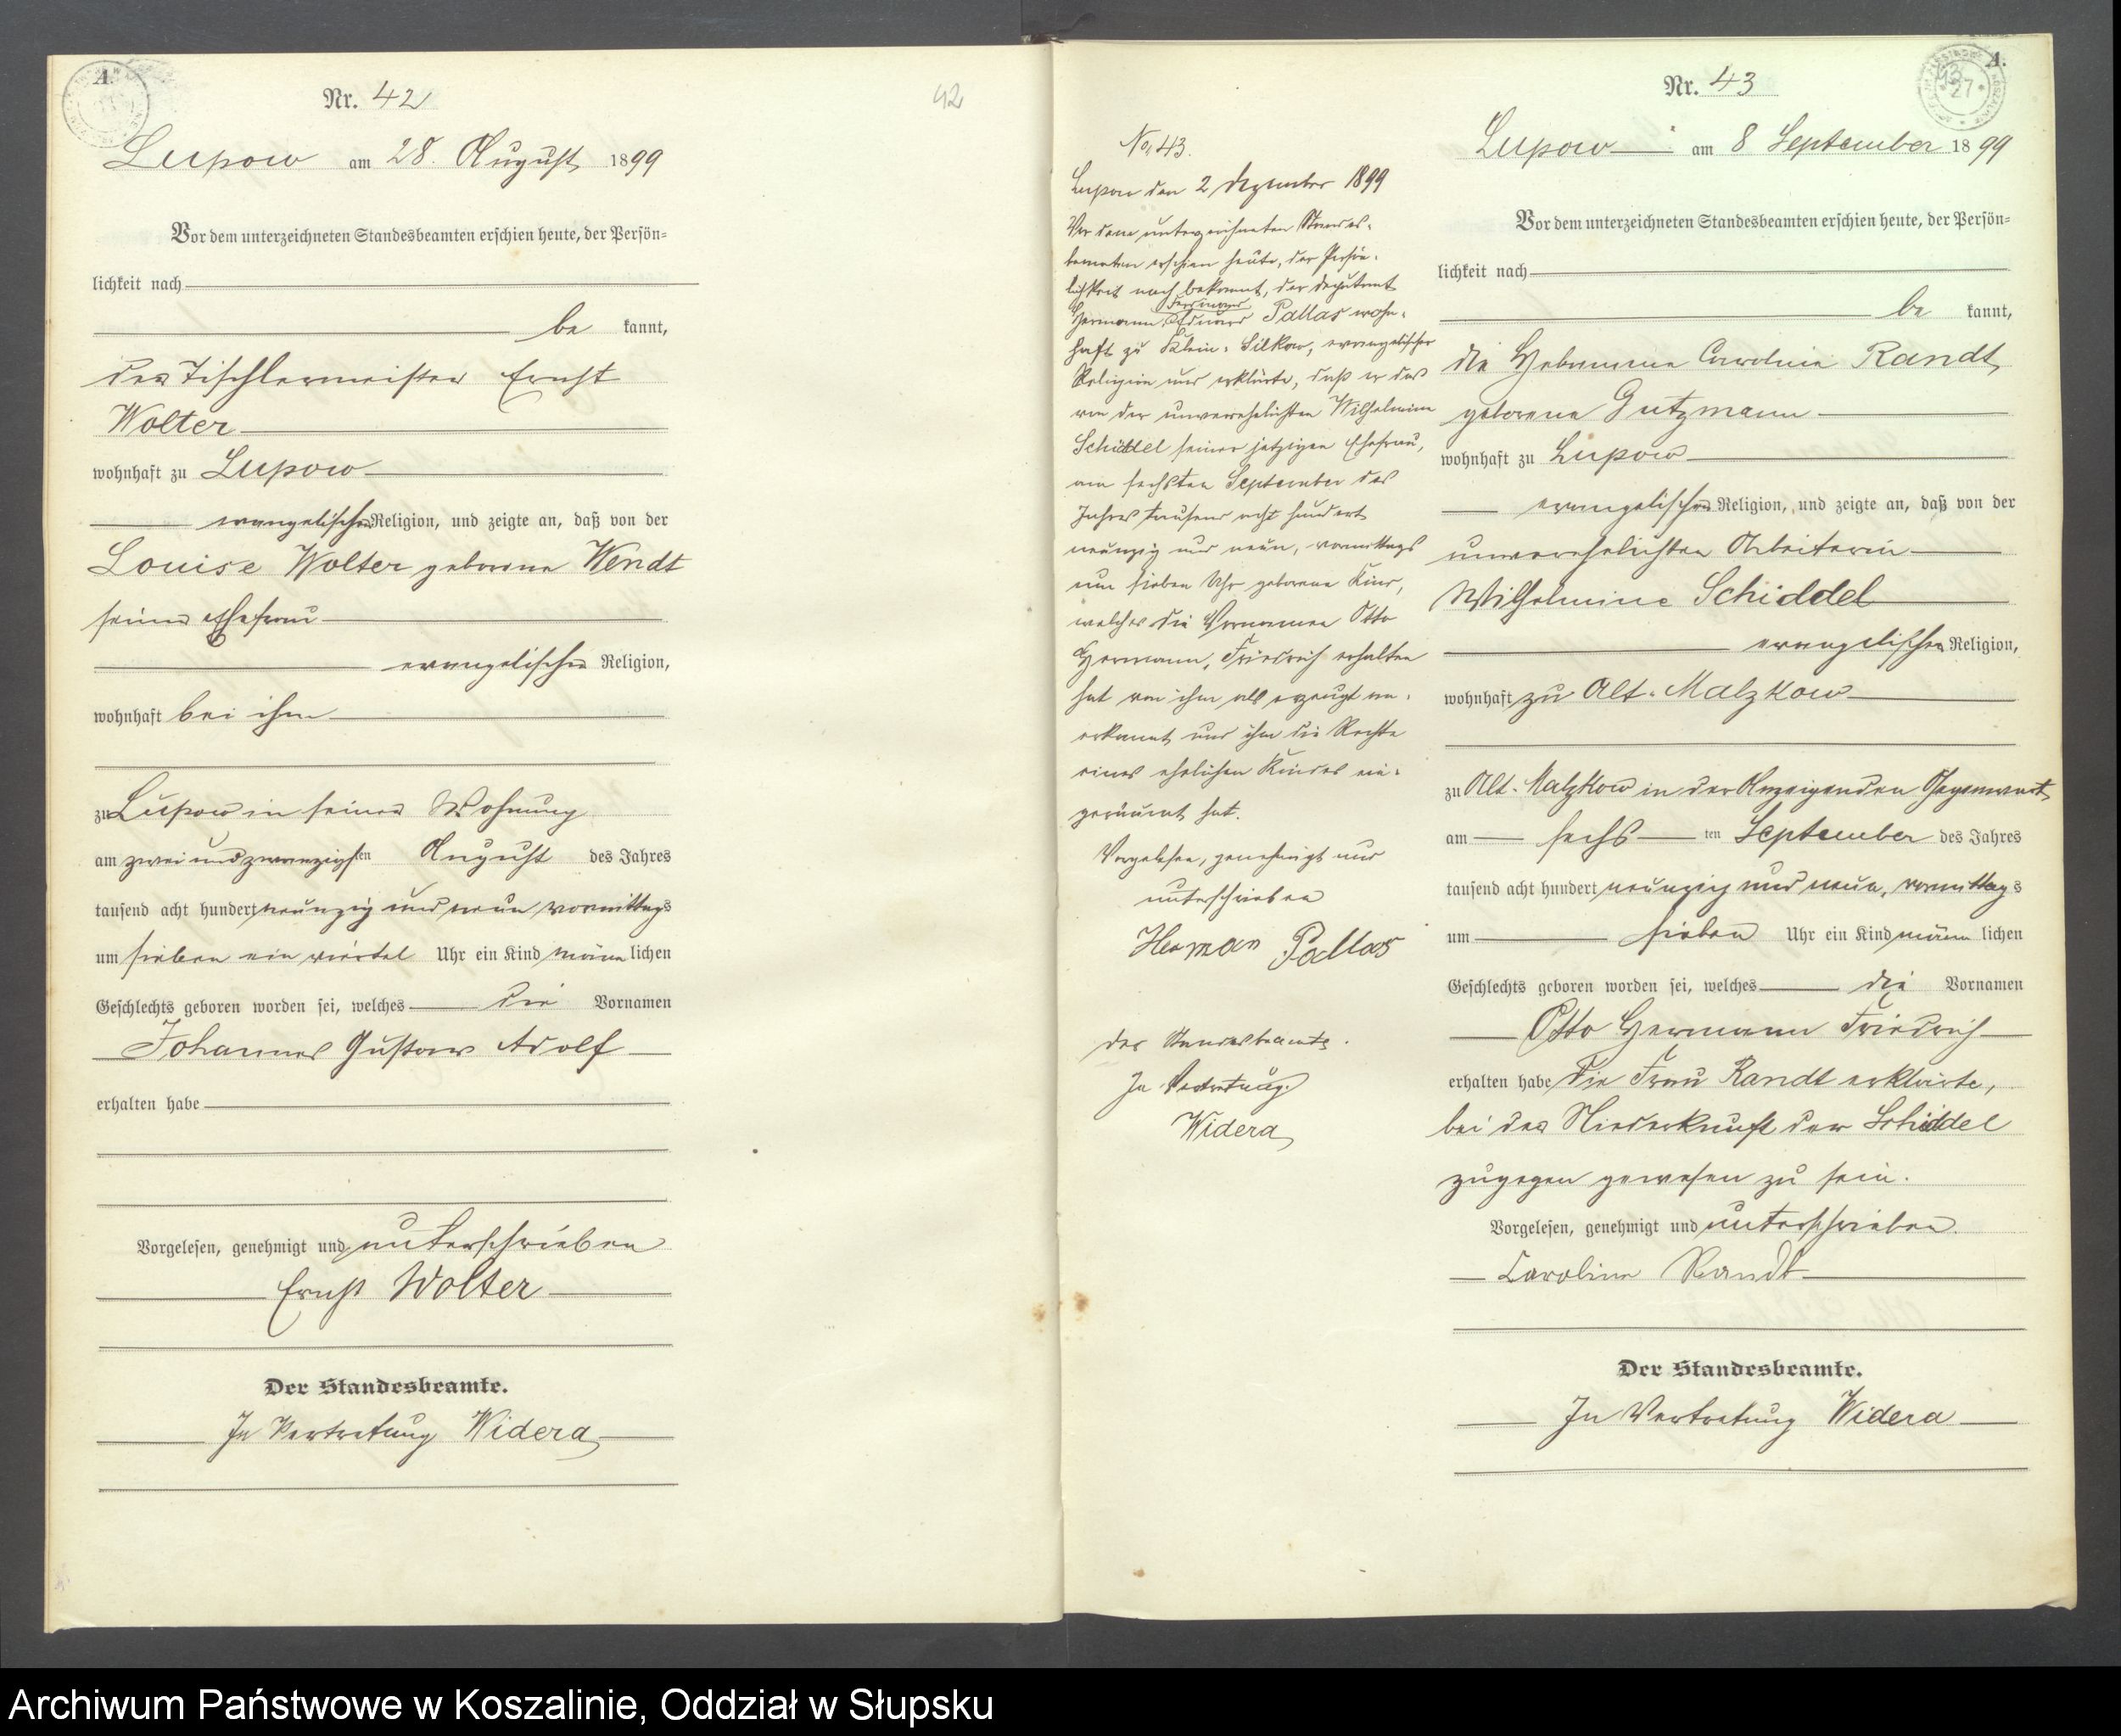 A.
Nr. 42
Lupow am 28. August 1899
Vor dem unterzeichneten Standesbeamten erschien heute, der Persön=
lichkeit nach
be kannt,
der Tischlermeister Ernst
Wolter
wohnhaft zu Lupow
evangelischer Religion, und zeigte an, daß von der
Louise Wolter geborene Wendt
seiner Ehefrau
evangelischer Religion,
wohnhaft bei ihm
zu Lupow in seiner Wohnung
am zwei und zwanzigsten August des Jahres
tausend acht hundert neunzig und neun vormittags
um sieben ein viertel Uhr ein Kind männlichen
Geschlechts geboren worden sei, welches die Vornamen
Johannes Gustav Adolf
erhalten habe
Vorgelesen, genehmigt und unterschrieben
Ernst Wolter
Der Standesbeamte.
In Vertretung Widera
42
No. 43.
Lupow den 2 Dezember 1899
Vor dem unterzeichneten Standes-
beamten erschien heute, der Persön-
lichkeit nach bekannt, der Deputant
Hermann Ferdinand Eduard Pallas wohn-
haft zu Klein-Silkow, evangelischer
Religion und erklärte, daß er das
von der unverehelichten Wilhelmine
Schiddel seiner jetzigen Ehefrau,
am sechsten September des
Jahres tausend acht hundert
neunzig und neun, vormittags
um sieben Uhr geborene Kind,
welches die Vornamen Otto
Hermann, Friedrich erhalten
hat von ihm als erzeugt an-
erkannt und ihm die Rechte
eines ehelichen Kindes ein-
geräumt hat.
Vorgelesen, genehmigt und
unterschrieben
Herman Pallas
Der Standesbeamte.
In Vertretung
Widera
A.
43
27
Nr. 43
Lupow am 8 September 1899
Vor dem unterzeichneten Standesbeamten erschien heute, der Persön=
lichkeit nach
be kannt,
die Hebamme Caroline Randt
geborene Gutzmann
wohnhaft zu Lupow
evangelischer Religion, und zeigte an, daß von der
unverehelichten Arbeiterin
Wilhelmine Schiddel
evangelischer Religion,
wohnhaft zu Alt-Malzkow
zu Alt-Malzkow in der Anzeigenden Gegenwart
am sechs ten September des Jahres
tausend acht hundert neunzig und neun, vormittags
um sieben Uhr ein Kind männlichen
Geschlechts geboren worden sei, welches die Vornamen
Otto Hermann Friedrich
erhalten habe Die Frau Randt erklärte,
bei der Niederkunft der Schiddel
zugegen gewesen zu sein.
Vorgelesen, genehmigt und unterschrieben.
Caroline Randt
Der Standesbeamte.
In Vertretung Widera
Archiwum Państwowe w Koszalinie, Oddział w Słupsku